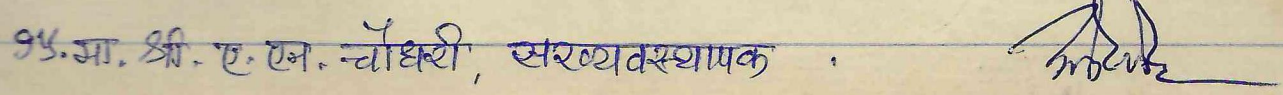 १५. मा. श्री. ए. एन. चौधरी, सरव्यवस्थापक .